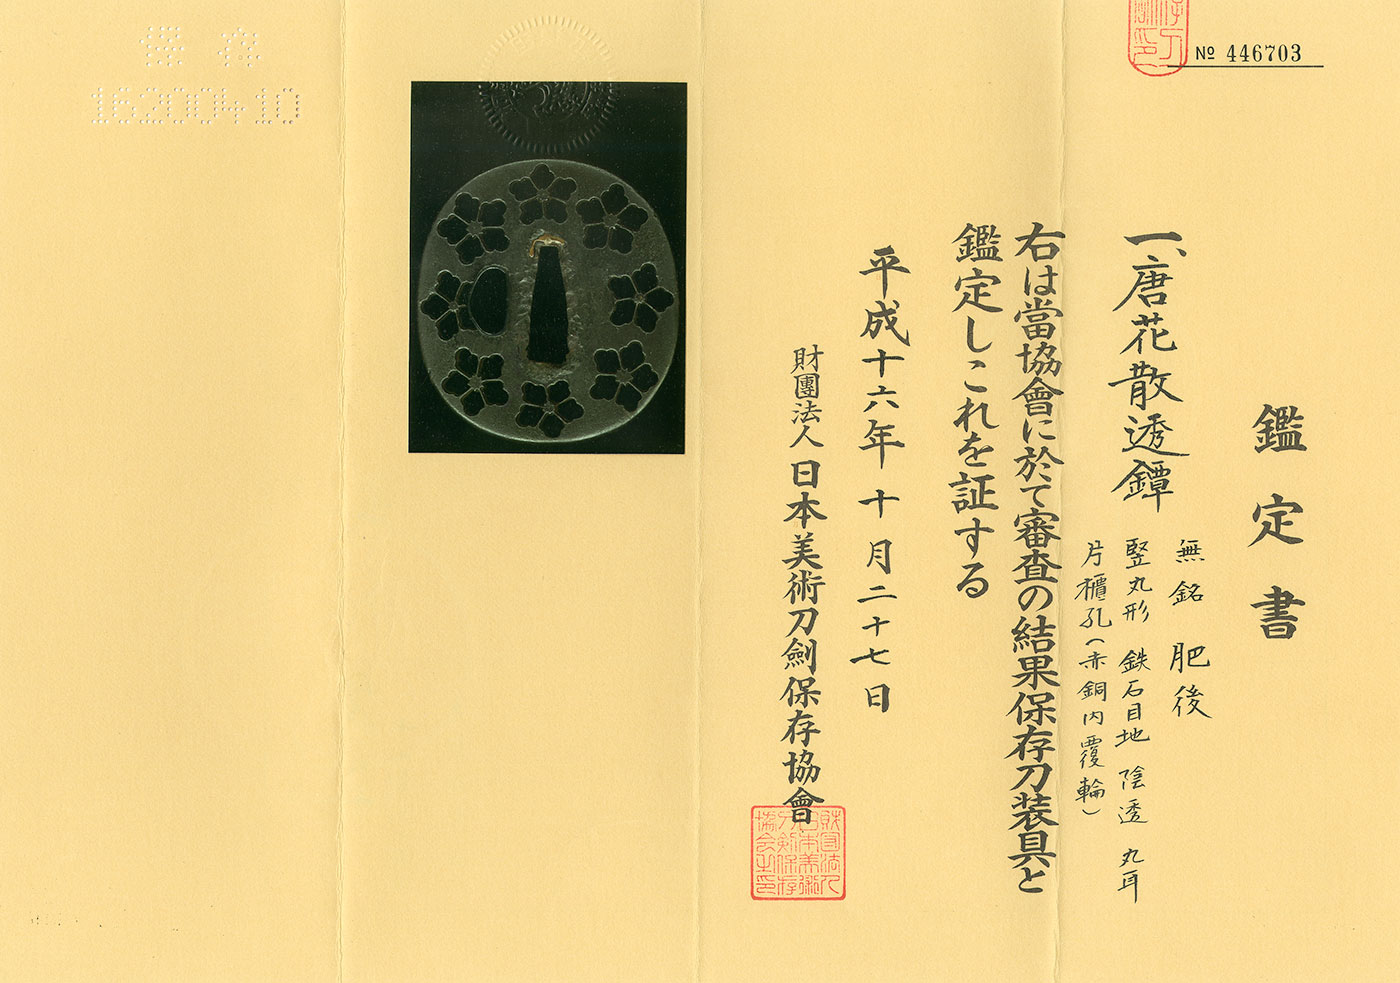 № 446703
鑑定書
一、唐花散透鐔
無銘 肥後
竪丸形 鉄石目地 陰透 丸耳
片櫃孔(赤銅内覆輪)
右は當協會に於て審査の結果保存刀装具と
鑑定しこれを証する
平成十六年十月二十七日
財團法人日本美術刀劍保存協會
財団法人
日本美術
刀剣保存
協会之印
保存
16200410